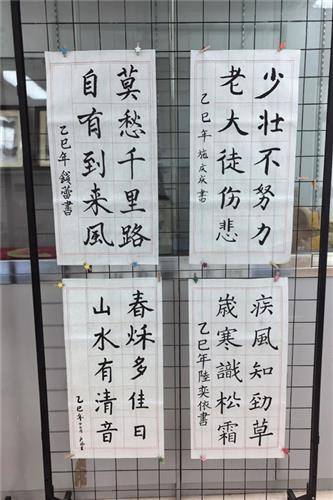 少壮不努力
老大徒伤悲
乙巳年 施 書
莫愁千里路
自有到来風
乙巳年 錢蕾書
疾風知勁草
歳寒識松霜
乙巳年陸奕依書
春秋多佳日
山水有清音
乙巳年